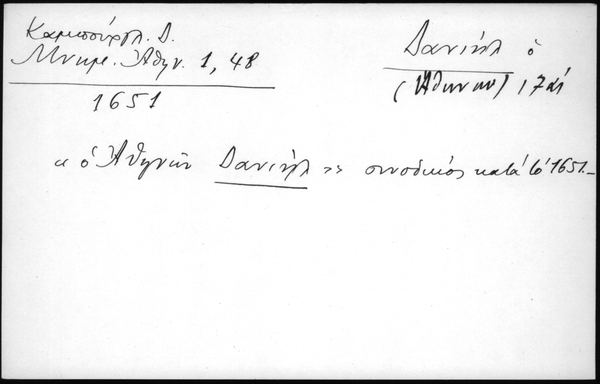 Καμπούρογλ. Δ.
Μνημ. Ἀθην. 1, 48
1651
Δανιὴλ ὁ
(Ἀθηνῶν) 17αι
«ὁ Ἀθηνῶν Δανιὴλ» συνοδικὸς κατὰ τὸ 1651.-